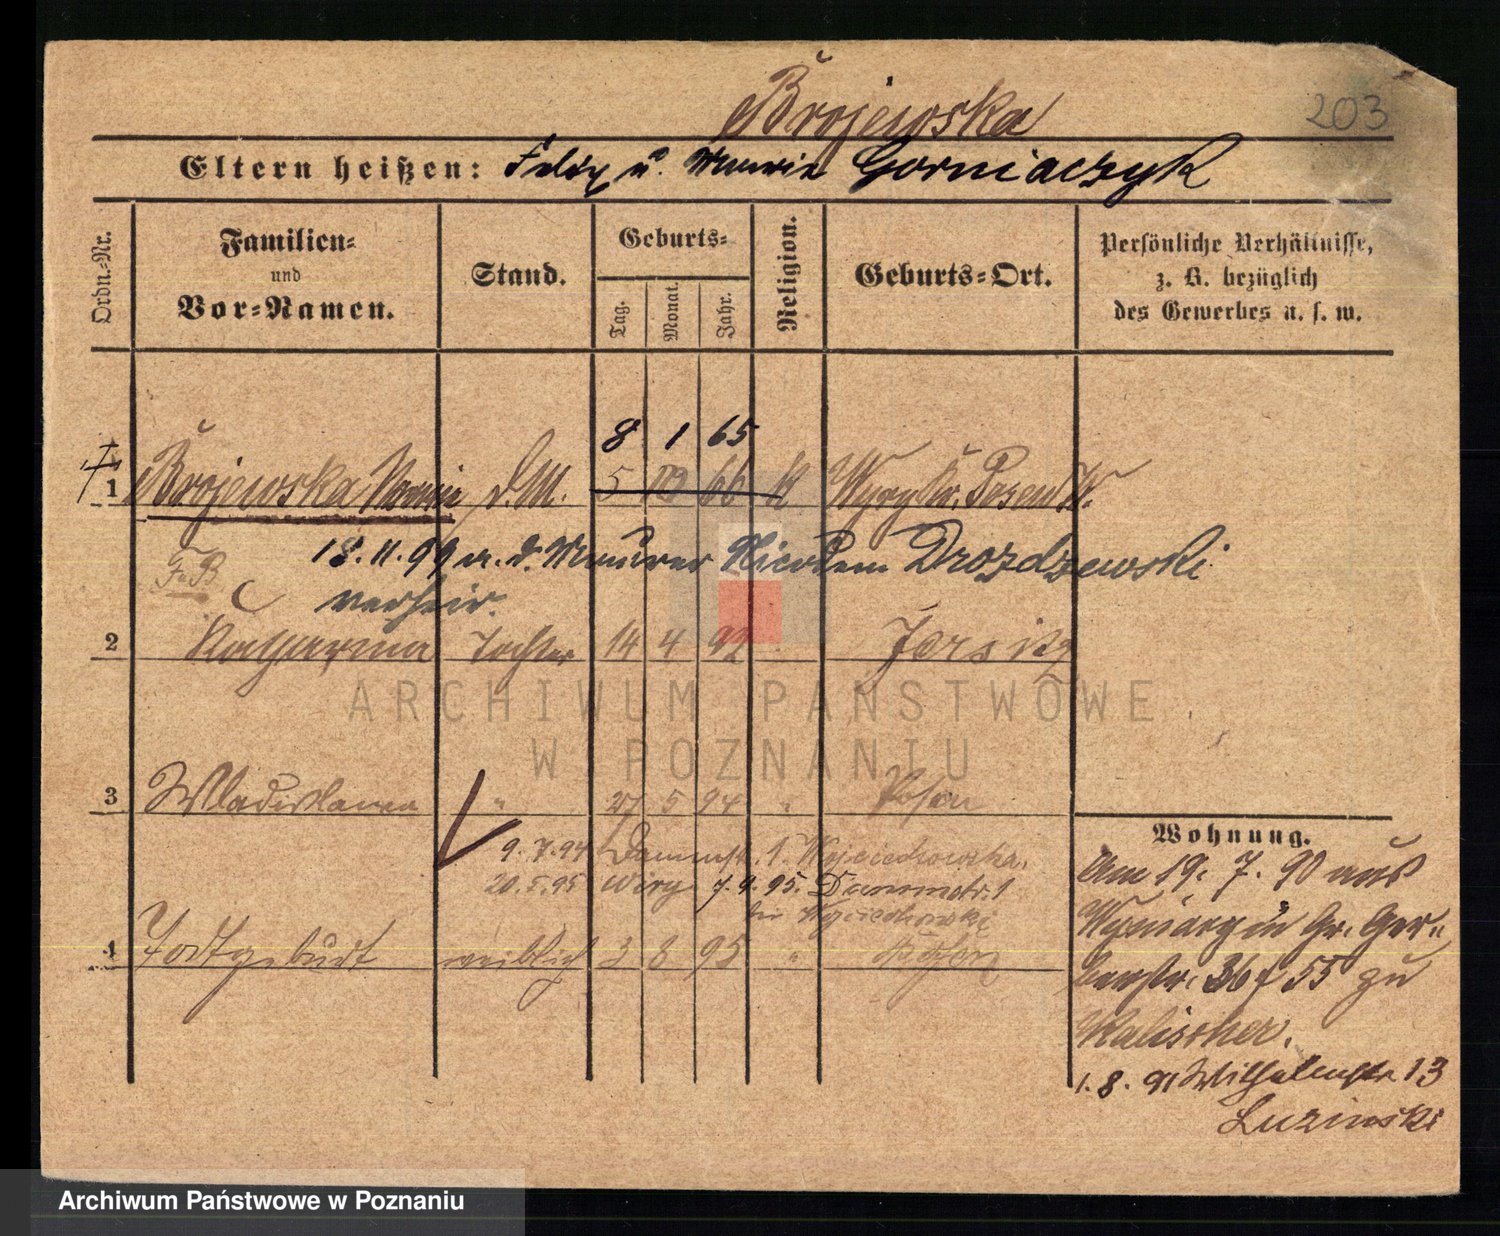 Brojewska
203
Eltern heißen: Felix u. Marie Gorniaczyk
Ordn.-Nr.
Familien-
und
Vor-Namen.
Stand.
Geburts-
Tag.
Monat.
Jahr.
Religion.
Geburts-Ort.
Persönliche Verhältnisse,
z. B. bezüglich
des Gewerbes u. s. w.
8 1 65
1 Brojewska Marie d. M. 5 66 K Posen W.
18.11.99 m. d. Maurer Nicodem Drozdzewski
verheir.
F. B.
2 Katharina Tochter 14 4 92 Jersitz
3 Wladislawa " 27 5 94 " Posen
Wohnung.
9.7.94 1. Wojciechowska.
20.5.95 Wiry 7.9.95. 1
bei Wojciechowski
4 Todtgeburt weiblich 3 8 95 " Posen
Am 19. 7. 90 aus
in Gr. Ger-
berstr. 36 55 zu
Kalischer.
1. 8. 91 Wilhelmstr. 13
Luzinski
ARCHIWUM PAŃSTWOWE
W POZNANIU
Archiwum Państwowe w Poznaniu